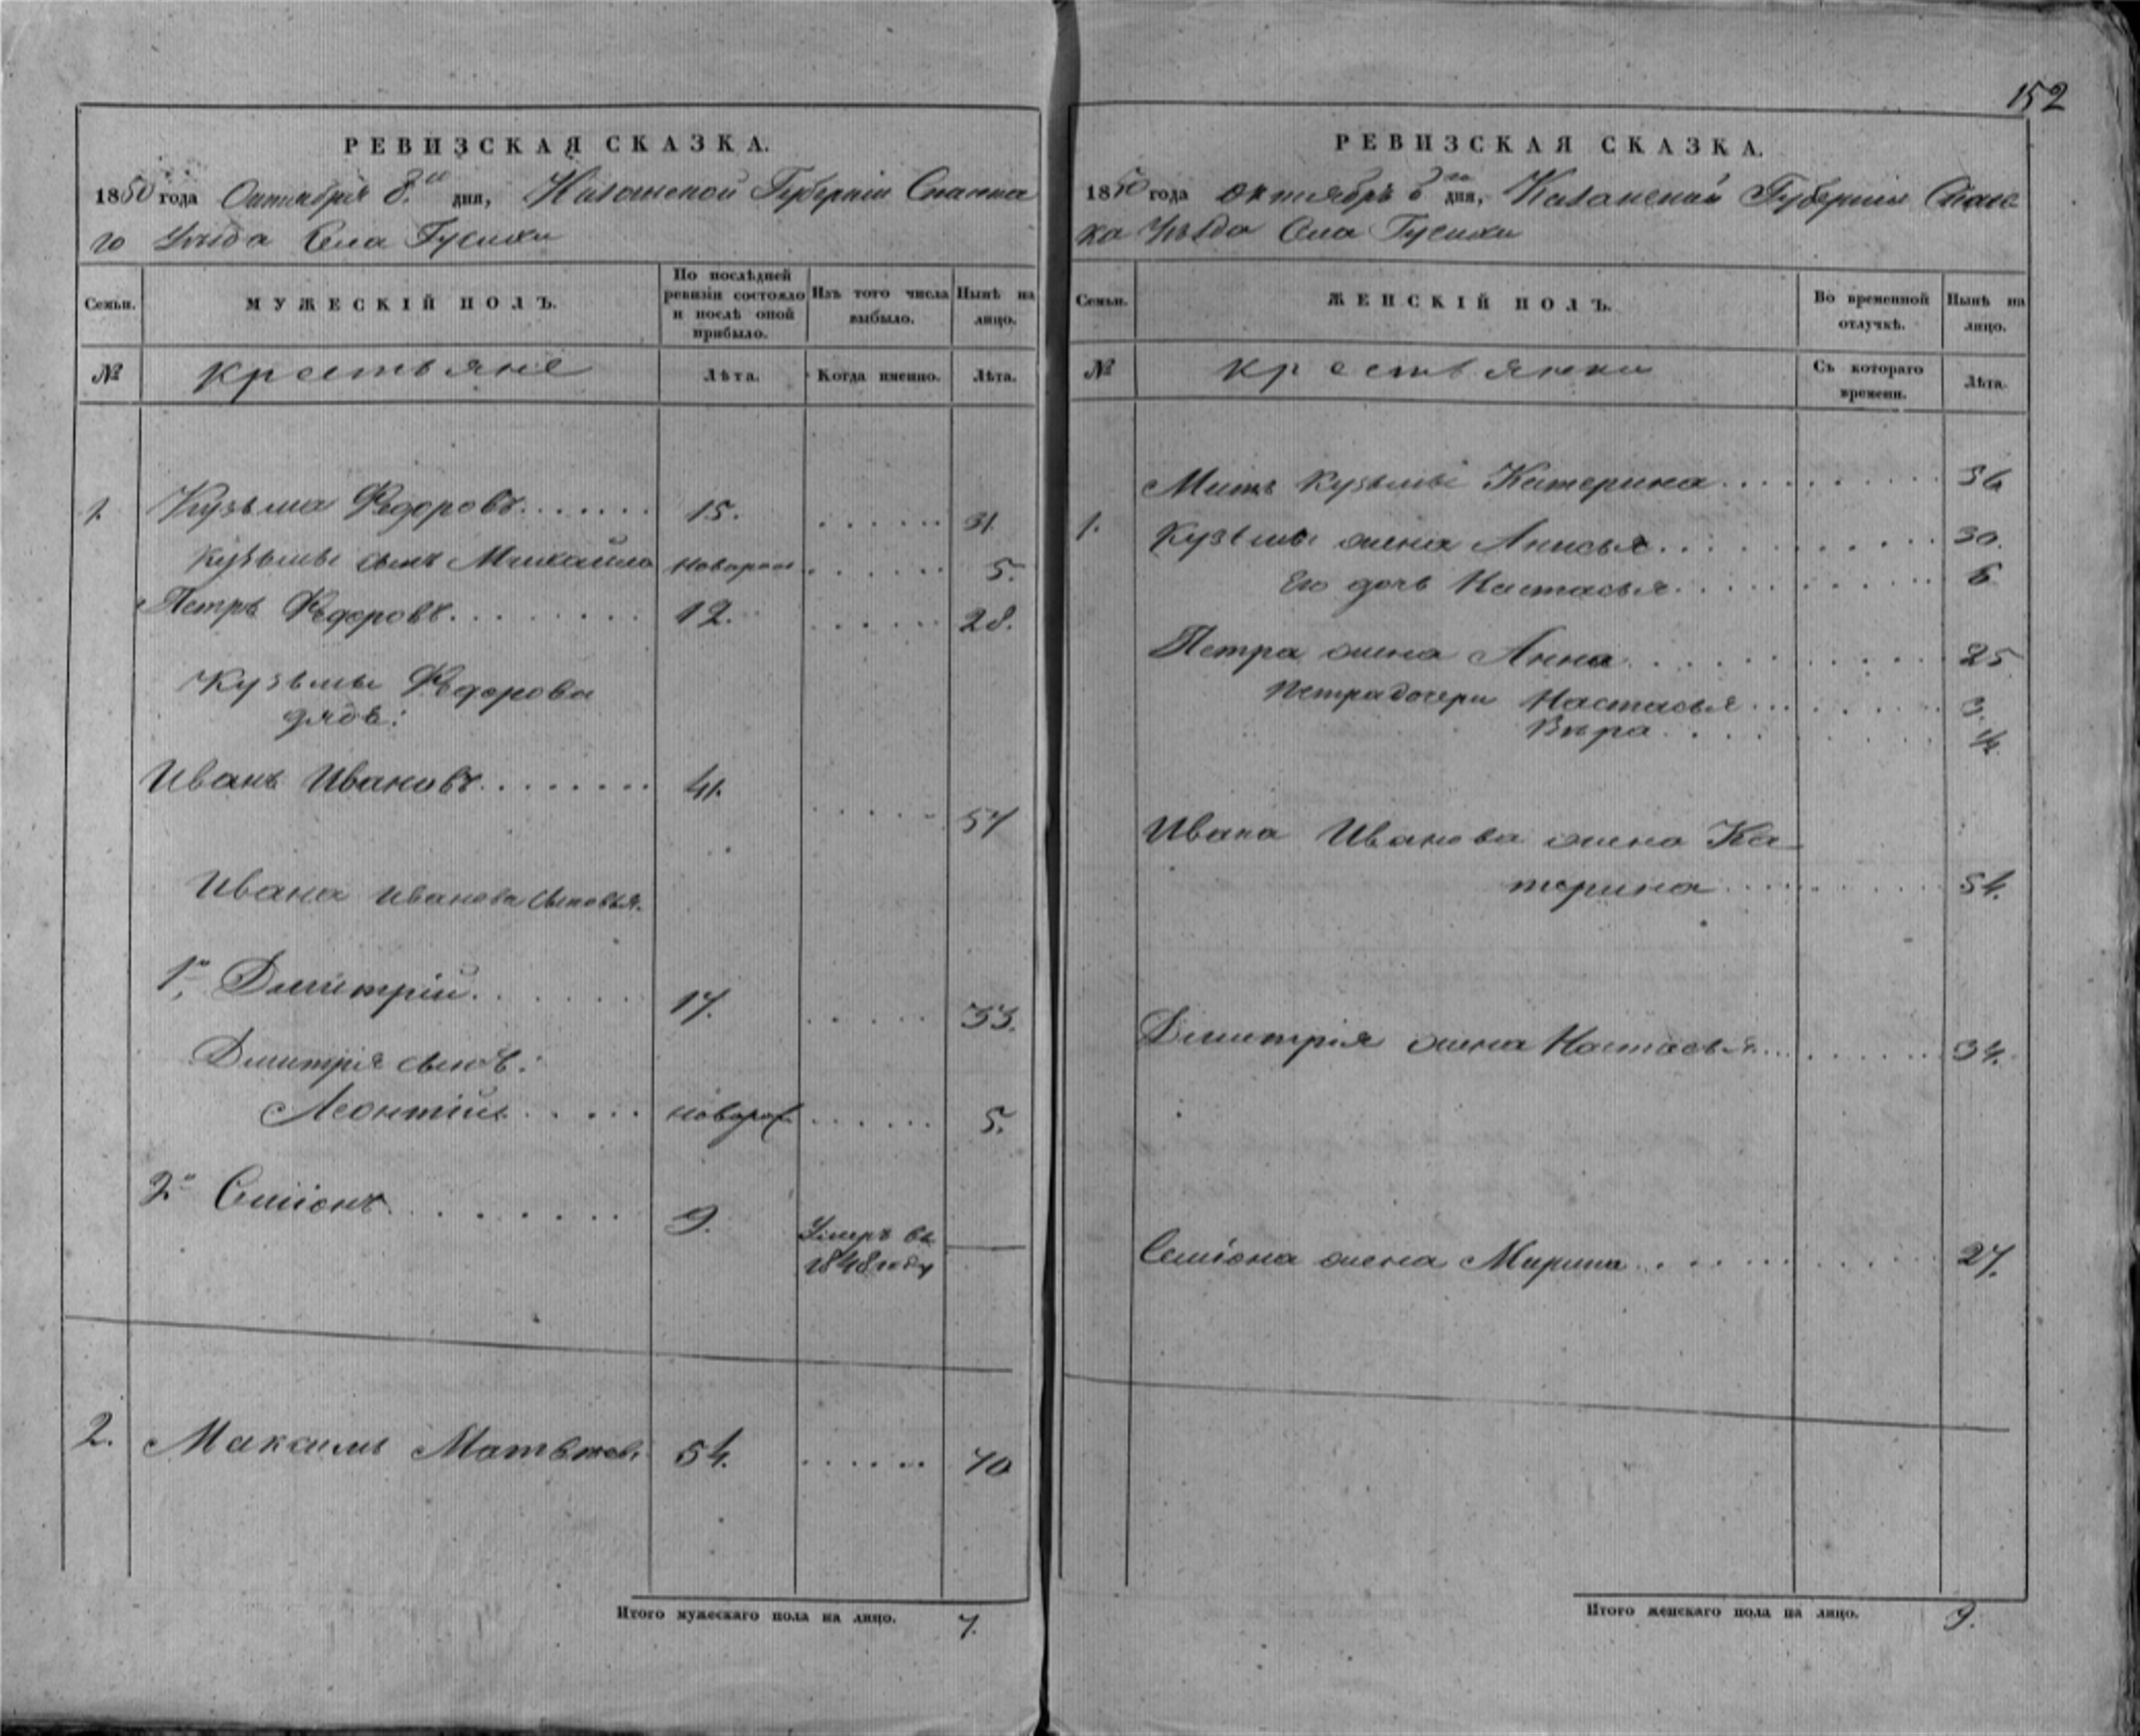 152
РЕВИЗСКАЯ СКАЗКА.
1850 года Октября 8.го дня, Казанской Губерніи Спаска
го Уѣзда Села Гусихи
Семьи.
МУЖЕСКІЙ ПОЛЪ.
По послѣдней ревизіи состояло и послѣ оной прибыло.
Изъ того числа выбыло.
Нынѣ на лицо.
№
Крестьяне
Лѣта.
Когда именно.
Лѣта.
1. Кузьма Федоровъ....... 15. ...... 31.
Кузьмы сынъ Михайло новорож ...... 5.
Петръ Федоровъ........ 12. ...... 28.
Кузьмы Федорова
дядя:
Иванъ Ивановъ........ 41. ..... 57
Ивана Иванова сыновья.
1й Дмитрій....... 17. ..... 33.
Дмитрія сынъ:
Леонтій..... новорож. ...... 5.
2й Семіонъ........ 9. Умеръ въ
1848 году —
2. Максимъ Матвеевъ 54. ...... 70
Итого мужескаго пола на лицо. 7.
РЕВИЗСКАЯ СКАЗКА.
1850 года октябрь 8го дня, Казанской Губерніи Спас
ка Уѣзда Села Гусихи
Семьи.
ЖЕНСКІЙ ПОЛЪ.
Во временной отлучкѣ.
Нынѣ на лицо.
№
крестьянки
Съ котораго времени.
Лѣта.
Мать Кузьмы Катерина.......... 56
1. Кузьмы жена Анисья............ 30.
Его дочь Настасья............ 6
Петра жена Анна............ 25
Петра дочери Настасья......... 3.
Вѣра.........
Ивана Иванова жена Ка-
терина......... 54.
Дмитрія жена Настасья......... 34.
Семіона жена Марина......... 27.
Итого женскаго пола на лицо. 9.